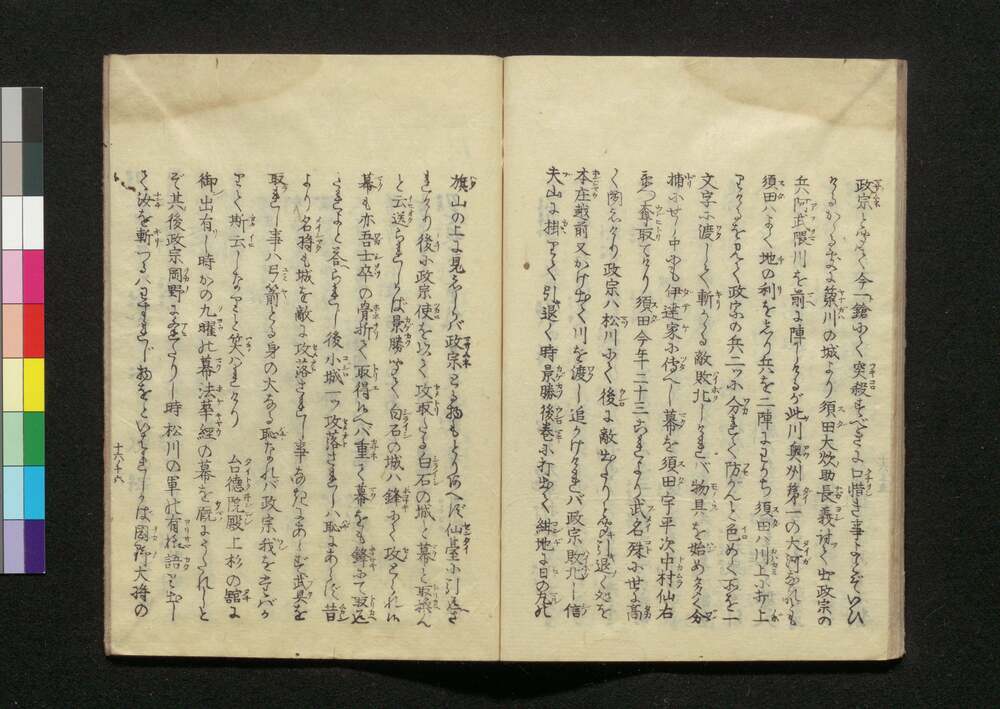 政宗とみて今一鎗にて突殺すべきに口惜き事よといひ
けるかゝる所に簗川の城より須田大炊助長義討て出政宗の
兵阿武隈川を前に陣しけるが此川奥州第一の大河なれども
須田ハよく地の利をしり兵を二陣にわかち須田ハ川上に打上
りくるを見て政宗の兵二ツに分れて防かんと色めく所を一
文字に渡して斬かゝる敵敗北しけれバ物具を始め多く分
捕にせし中にも伊達家に傳へし幕を須田宇平次中村仙右
衛つ奪取てけり須田今年二十三なりしより武名殊に世に高
く聞えけり政宗ハ松川にて後に敵出たりと引退く処を
本庄越前又かけ出て川を渡し追かけゝれバ政宗敗北し信
夫山に掛りて引退く時景勝後巻に打出て紺地に日の丸の
旗山の上に見えしかバ政宗とる物もとりあへず仙臺に引返さ
れけり後に政宗使を以て攻取たる白石の城と幕と取換ん
と云送られしかば景勝いはく白石の城ハ鋒にて攻とられぬ
幕も亦吾士卒の骨折て取得ぬへバ重て幕をも鋒にて取返
されよと答られし後小城一ツ攻落されしハ恥にあらず昔
より名将も城を敵に攻落されし事あれどものしが武具を
取れし事ハ弓箭とる身の大なる恥なれバ政宗我を云バか
りて斯云しなりとて笑ハれけり　台徳院殿上杉の舘に
御出有し時かの九曜の幕法華經の幕を厩にうたれしと
ぞ其後政宗岡野に逢たりし時松川の軍の有様語り出し
て汝を斬つるハわすれじ物をといはれしかば岡野大将の
十六ノ十六